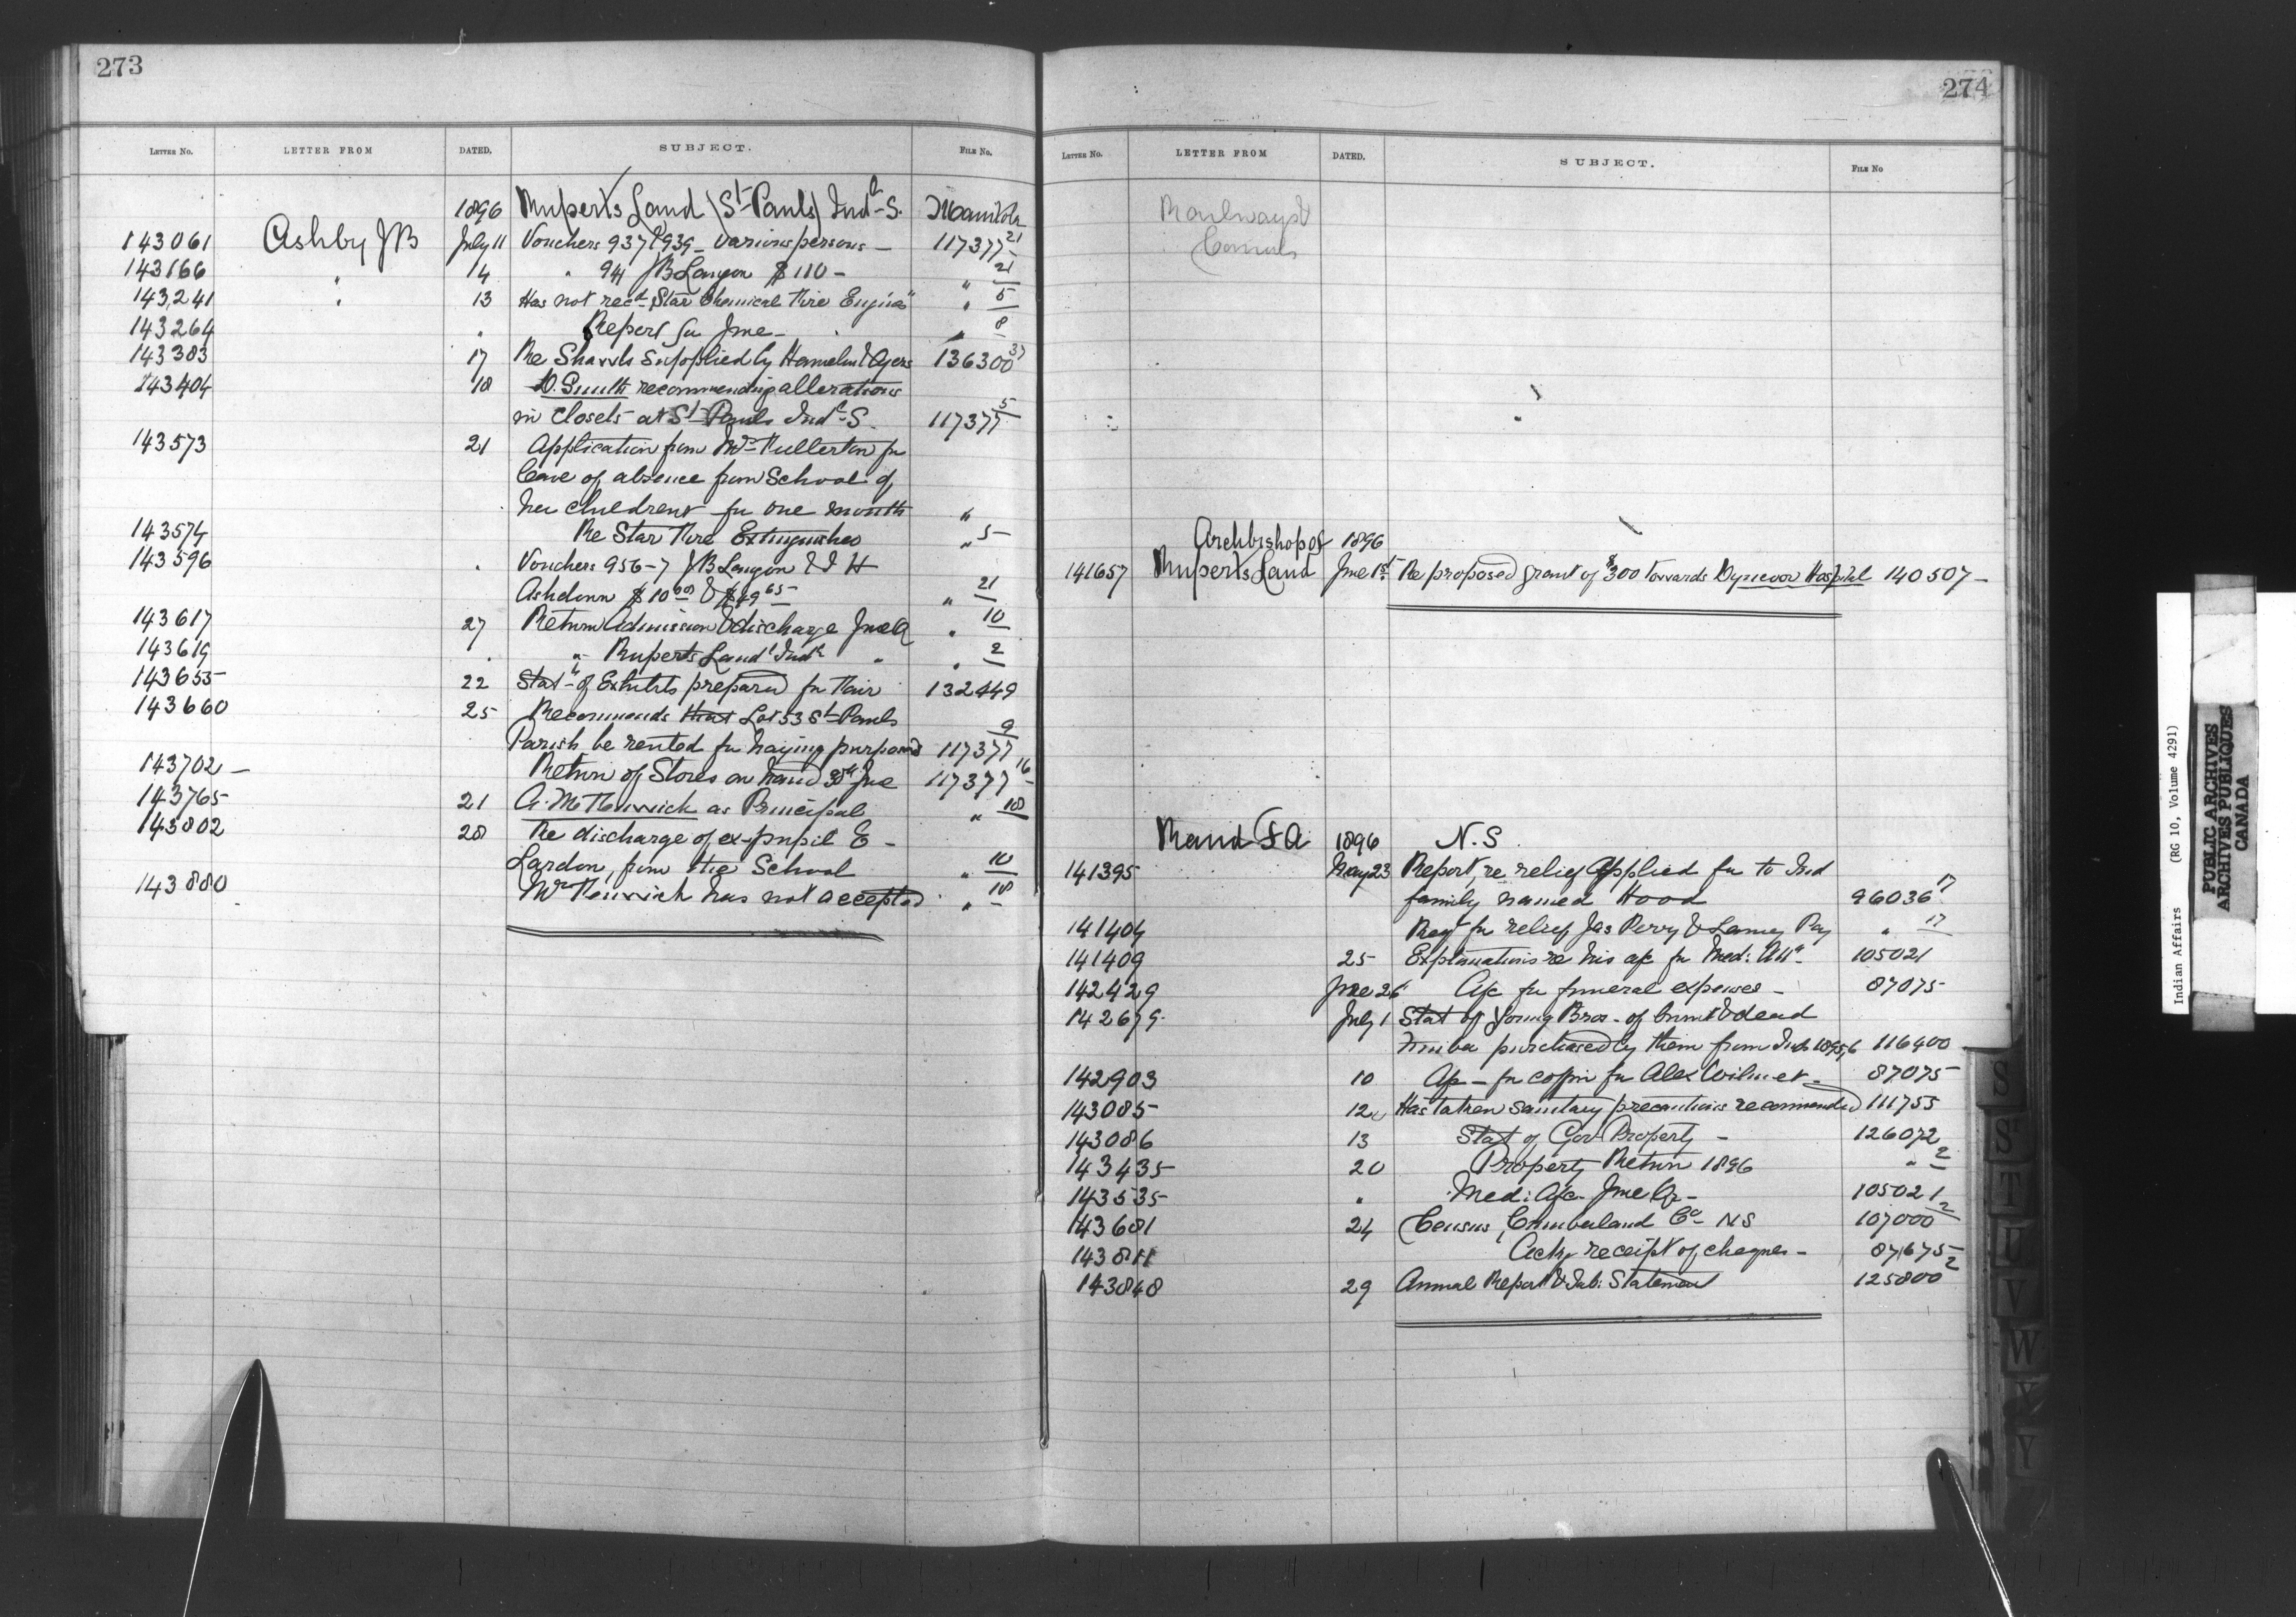 273
LETTER NO. LETTER FROM DATED. SUBJECT. FILE No.
1896 Ruperts Land (St Pauls) Indl S. Manitoba
143061 Ashby JB July 11 Vouchers 937 & 939 - various persons - 117377 21
143166 " 14 " 941 JB Lauzon $110 - " 21
143241 " 13 Has not recd "Star Chemical Fire Engine" " 5
143264 " Report for June - " 8
143383 17 Re Shawls supplied by Hamelin & Ayers 136300 37
143404 18 D. Smith recommending alterations
in closets at St Pauls Indl S. 117377 5
143573 21 Application from Mrs Fullerton for
leave of absence from School of
her children for one month "
143574 Re Star Fire Extinguisher " 5
143596 " Vouchers 956-7 JB Lauzon & J H
Ashdown $10.00 & $49.65 " 21
143617 27 Return Admission & discharge June Q " 10
143619 " " Ruperts Land Indl " " 2
143655 22 Statt of Exhibits prepared for Fair 132449
143660 25 Recommends that Lot 53 St Pauls
Parish be rented for haying purposes 117377 9
143702 Return of Stores on hand 30th June 117377 16
143765 21 A. McFenwick as Principal " 18
143802 28 Re discharge of ex-pupil E
Lardon, from the School " 10
143880 Mr Fenwick has not accepted " 18
274
LETTER NO. LETTER FROM DATED. SUBJECT. FILE No
Railways &
Canals
Archbishop of 1896
141657 Ruperts Land June 1st Re proposed grant of $300 towards Dynevor Hospital 140507
Rand F A 1896 N.S.
141395 May 23 Report, re relief applied for to Ind
family named Hood 96036 17
141404 Reqt for relief Jas Perry & Laney Pay " 17
141409 25 Explanations re his a/c for Med: Atte 105021
142429 June 26 A/c for funeral expenses - 87075
142679 July 1 Stat of Young Bros. of burnt & dead
timber purchased by them from Inds 1895/6 116400
142903 10 A/c - for coffin for Alex Wilmet - 87075
143085 12 Has taken sanitary precautions recommended 111755
143086 13 Stat of Gov Property - 126072
143435 20 Property Return 1896 " 2
143535 " Med: A/c June Qr - 105021
143681 24 Census, Cumberland Co NS 107000 2
143811 Ackg receipt of cheques - 87675
143848 29 Annual Report & Tab: Statement 125800 2
S
St
T
U
V
W
Y
Y
Indian Affairs (RG 10, Volume 4291)
PUBLIC ARCHIVES
ARCHIVES PUBLIQUES
CANADA